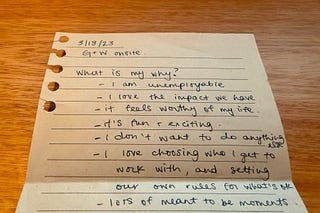 3/13/23
G+W onsite
What is my why?
- I am unemployable
- I love the impact we have
- it feels worthy of my life.
- it's fun + exciting.
- I don't want to do anything else
- I love choosing who I get to
work with, and setting
our own rules for what's ok
- lots of meant to be moments